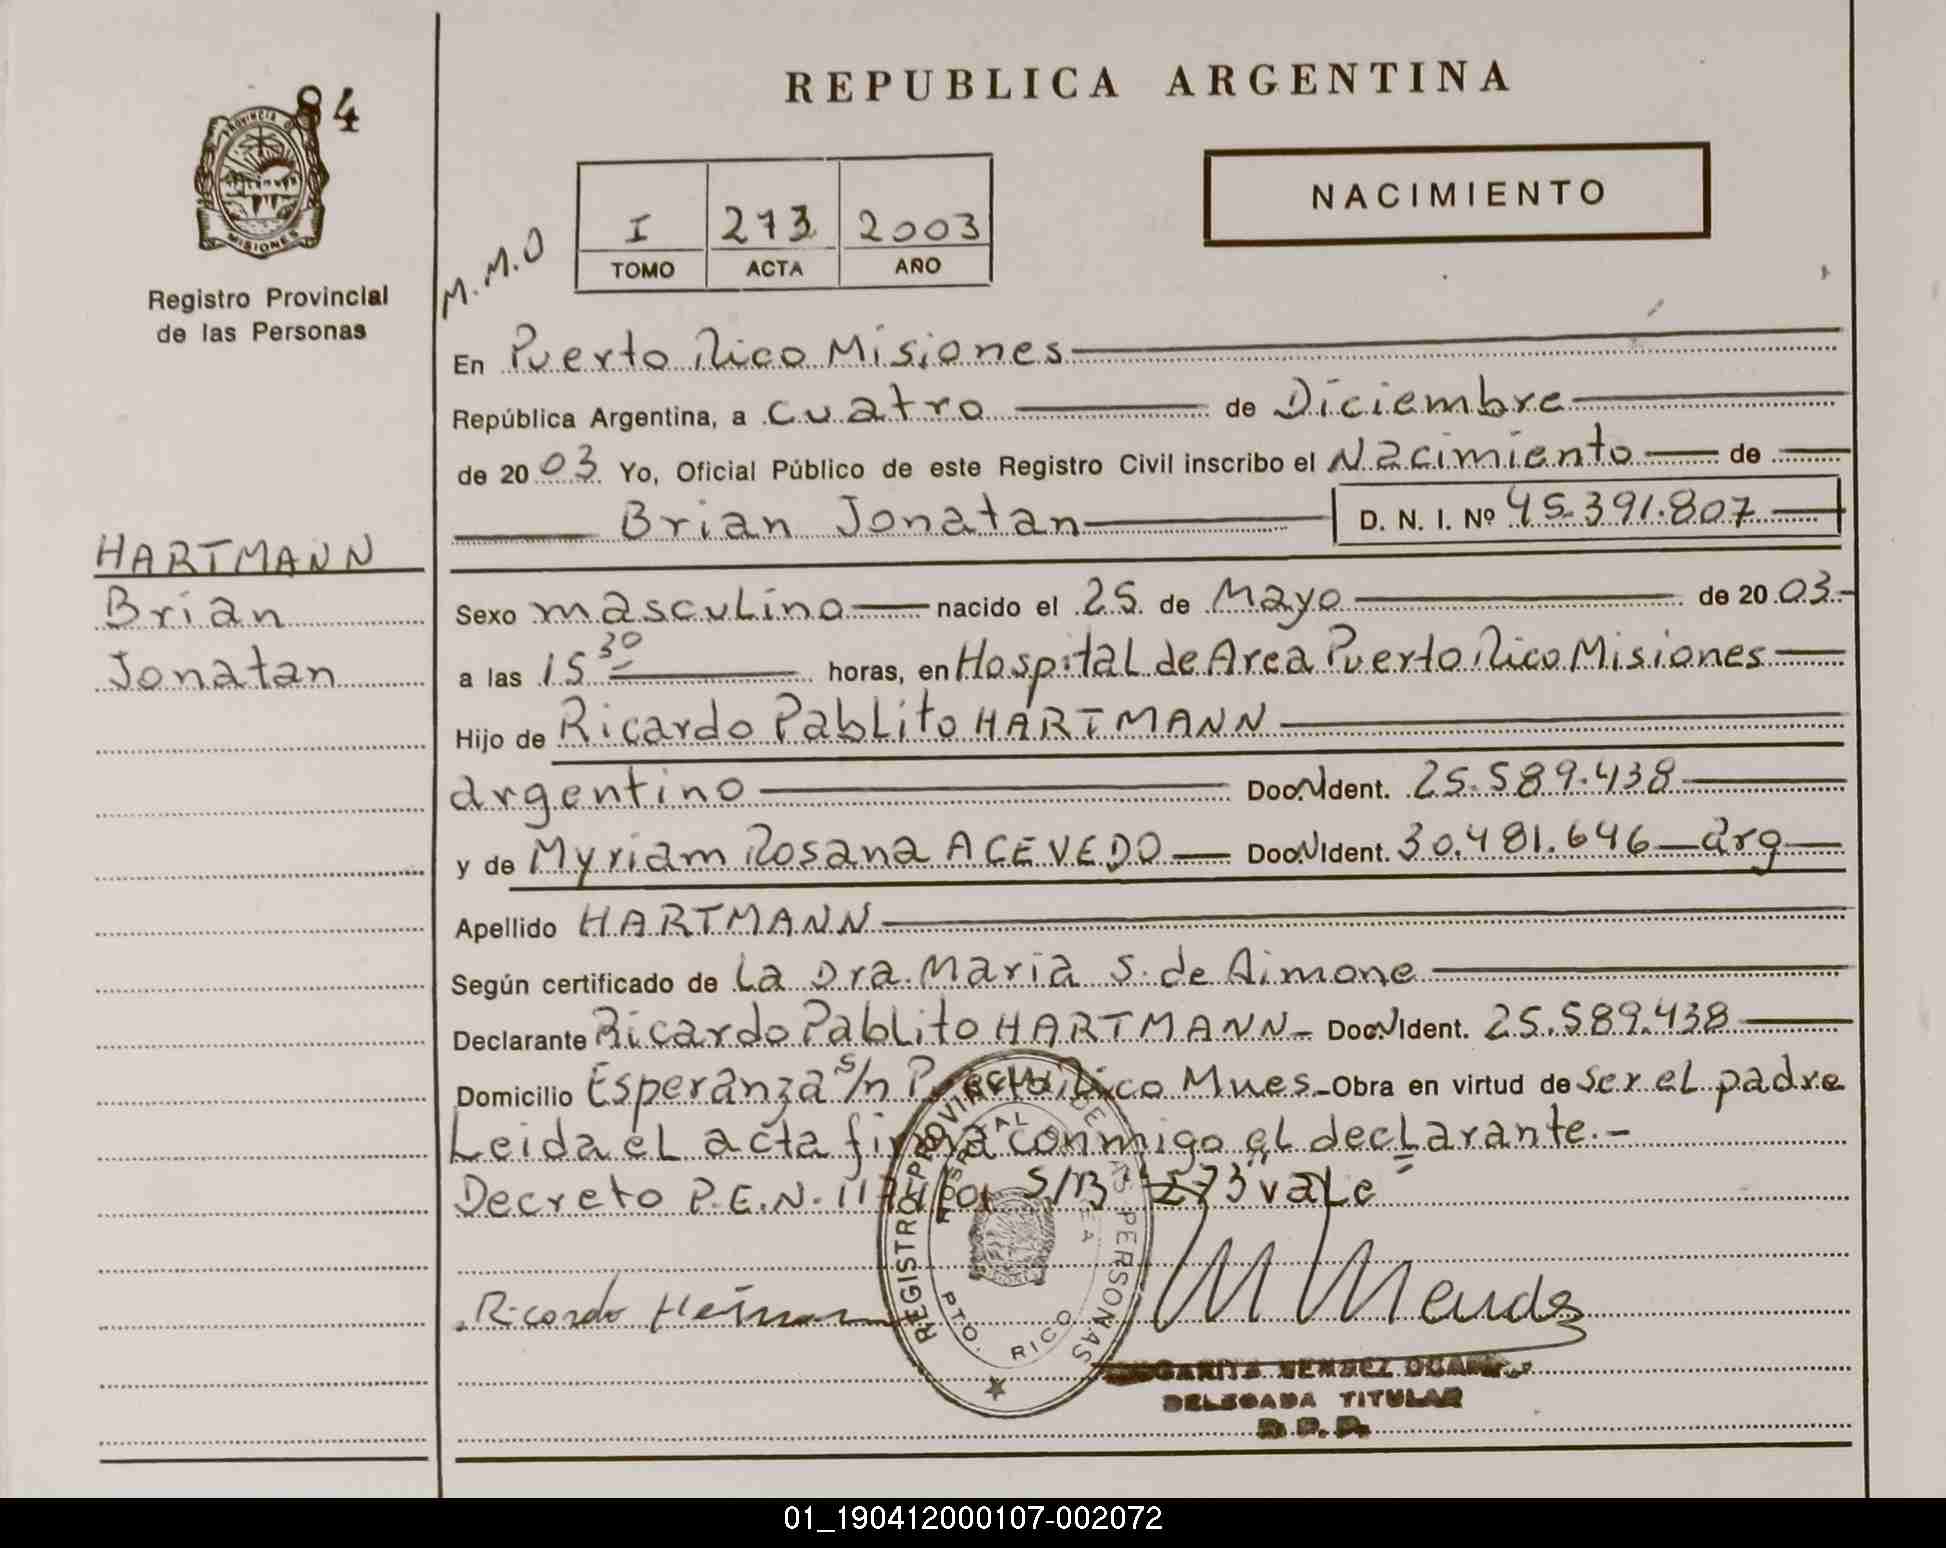 84
REPUBLICA ARGENTINA
PROVINCIA DE
MISIONES
Registro Provincial
de las Personas
I 273 2003
TOMO ACTA AÑO
NACIMIENTO
M.M.O
En Puerto Rico Misiones
República Argentina, a cuatro de Diciembre
de 20 03 Yo, Oficial Público de este Registro Civil inscribo el Nacimiento de
Brian Jonatan D. N. I. Nº 45.391.807
HARTMANN
Brian
Jonatan
Sexo masculino nacido el 25 de Mayo de 20 03
a las 15 30 horas, en Hospital de Area Puerto Rico Misiones
Hijo de Ricardo Pablito HARTMANN
argentino Doc. N Ident. 25.589.438
y de Myriam Rosana ACEVEDO Doc. N Ident. 30.481.646 arg
Apellido HARTMANN
Según certificado de La Dra. Maria S. de Aimone
Declarante Ricardo Pablito HARTMANN Doc. N Ident. 25.589.438
Domicilio Esperanza s/n Puerto Rico Mnes Obra en virtud de ser el padre
Leida el acta firma conmigo el declarante.-
Decreto P.E.N. S/B "273" vale
REGISTRO PROVINCIAL DE LAS PERSONAS
HOSPITAL AREA
PTO. RICO
Ricardo
M Mendez
MENDEZ
DELEGADA TITULAR
01_190412000107-002072